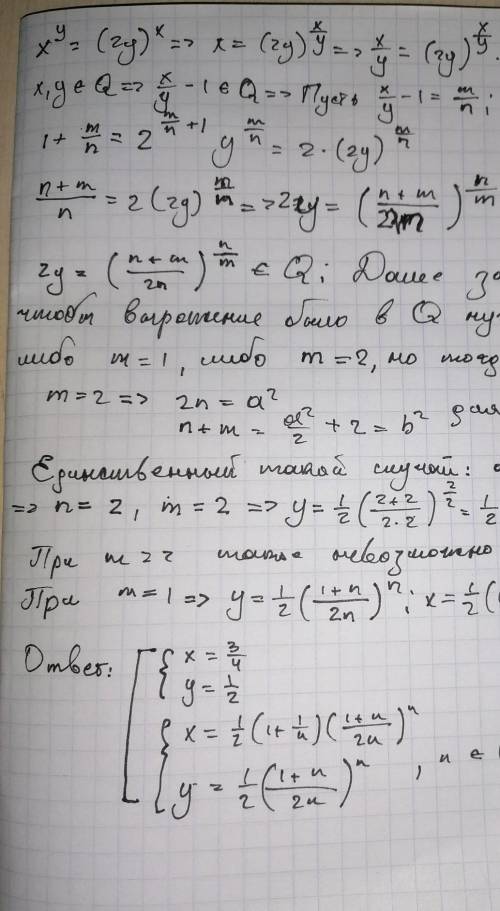 x^y = (2y)^x => x = (2y)^{x/y} => x/y = (2y)^{x/y}
x, y ∈ Q => x/y - 1 ∈ Q => Пусть x/y - 1 = m/n;
1 + m/n = 2^{m/n + 1} y^{m/n} = 2 · (2y)^{m/n}
(n+m)/n = 2(2y)^{m/n} => 2y =
2y = ((n+m)/2n)^{n/m} ∈ Q; Далее за
чтобы выражение было в Q ну
либо m = 1, либо m = 2, но тогд
m = 2 => 2n = a²
n + m = a²/2 + 2 = b² для
Единственный такой случай:
=> n = 2, m = 2 => y = 1/2 ((2+2)/(2·2))^{2/2} = 1/2
При m > 2 такое невозможно
При m = 1 => y = 1/2 ((1+n)/2n)^n; x = 1/2 (
Ответ: [ { x = 3/4
y = 1/2
{ x = 1/2 (1 + 1/n) ((1+n)/2n)^n
y = 1/2 ((1+n)/2n)^n, n ∈